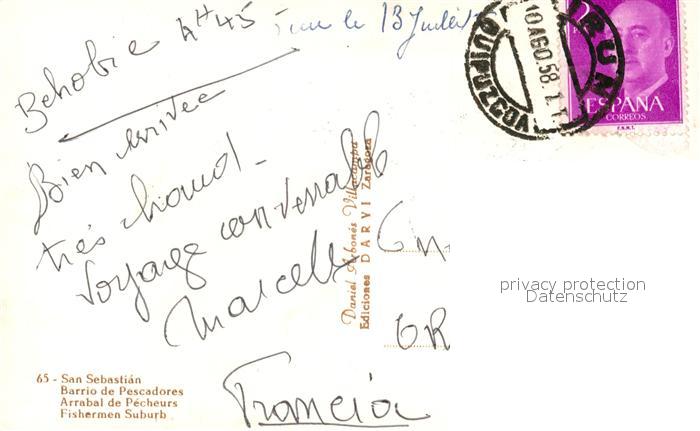 Behobie
le 13 Juillet
Bien arrivée
très chaud -
Voyage convenable
Marcelle
Francia
65 - San Sebastián
Barrio de Pescadores
Arrabal de Pécheurs
Fishermen Suburb
Daniel Arbonés Villacampa
Ediciones DARVI Zaragoza
IRUN
10 AGO 58
GUIPUZCOA
ESPAÑA
CORREOS
F.N.M.T.
privacy protection
Datenschutz